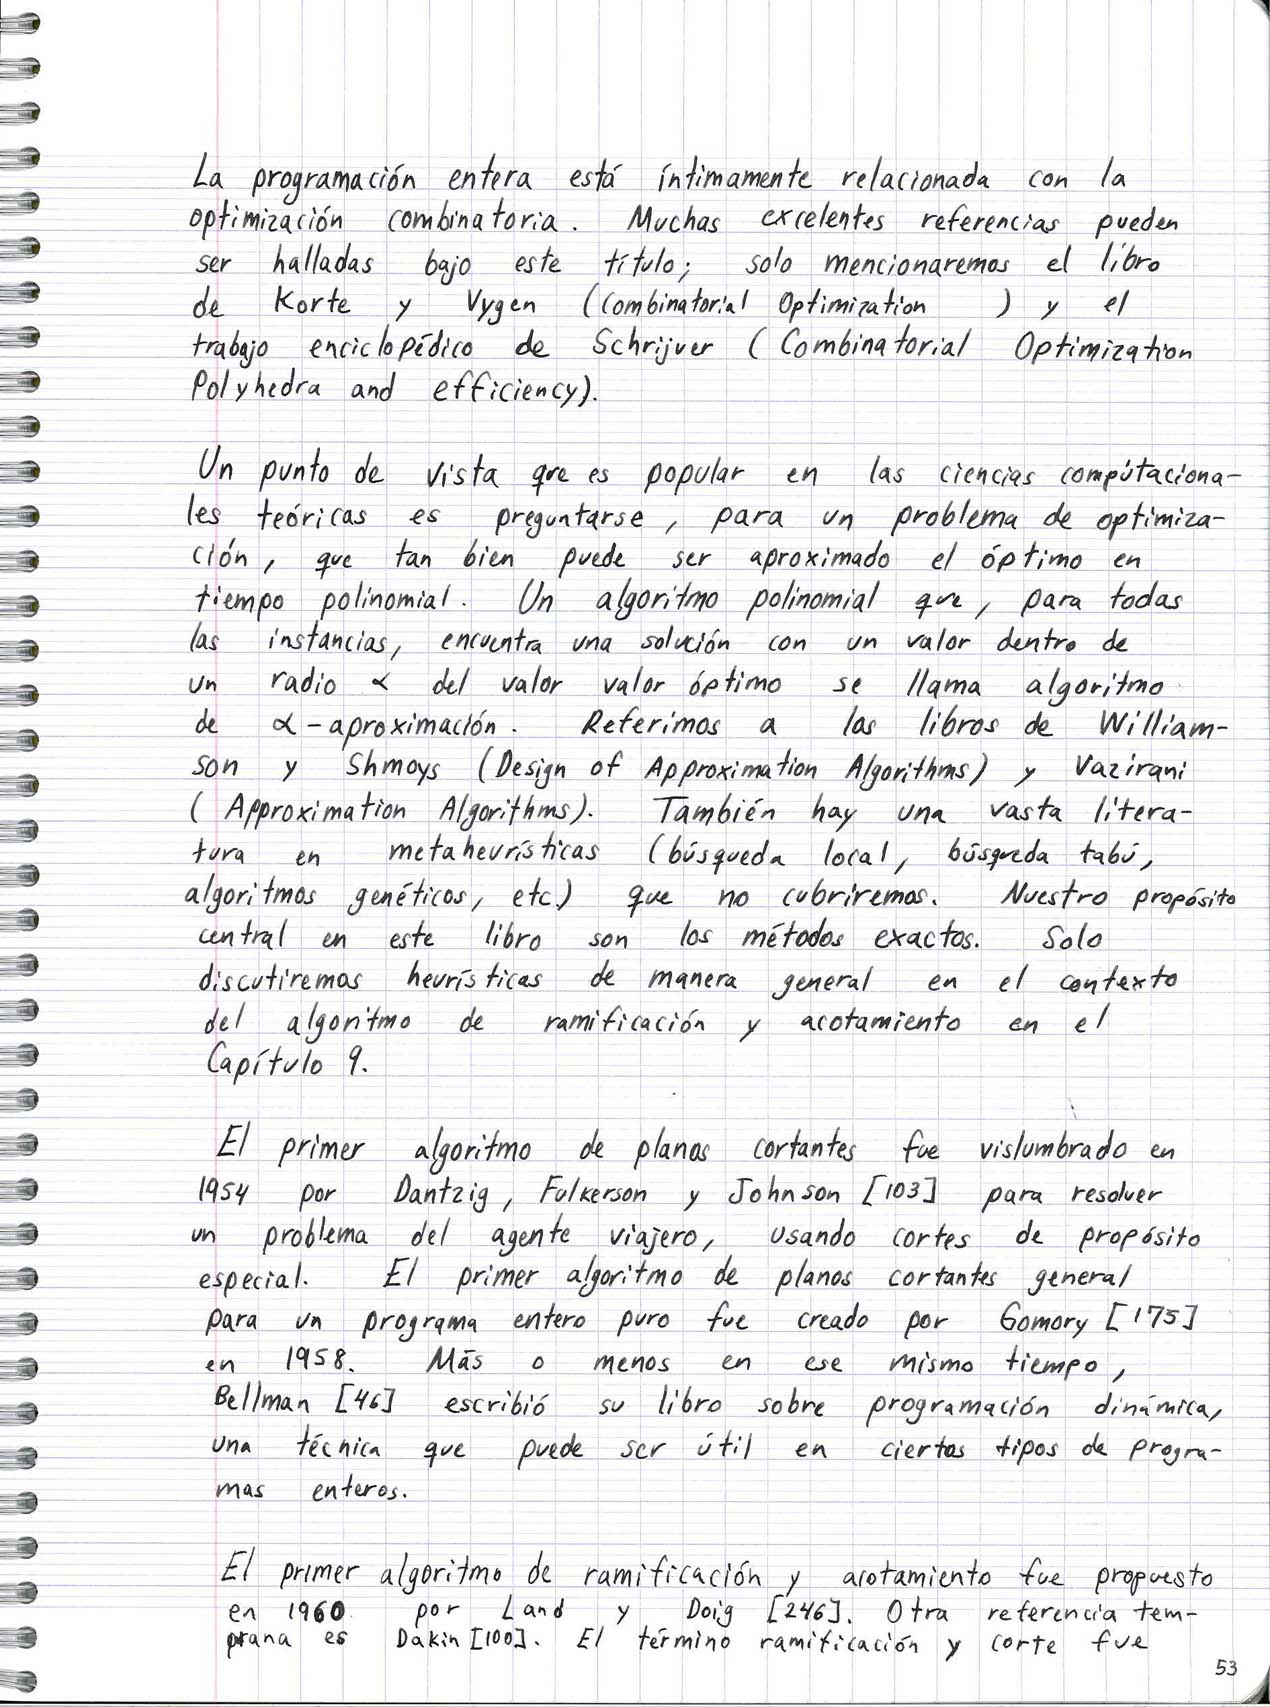 La programación entera está íntimamente relacionada con la
optimización combinatoria. Muchas excelentes referencias pueden
ser halladas bajo este título; solo mencionaremos el libro
de Korte y Vygen (Combinatorial Optimization ) y el
trabajo enciclopédico de Schrijver (Combinatorial Optimization
Polyhedra and efficiency).
Un punto de vista que es popular en las ciencias computaciona-
les teóricas es preguntarse, para un problema de optimiza-
ción, que tan bien puede ser aproximado el óptimo en
tiempo polinomial. Un algoritmo polinomial que, para todas
las instancias, encuentra una solución con un valor dentro de
un radio α del valor valor óptimo se llama algoritmo
de α-aproximación. Referimos a los libros de William-
son y Shmoys (Design of Approximation Algorithms) y Vazirani
(Approximation Algorithms). También hay una vasta litera-
tura en metaheurísticas (búsqueda local, búsqueda tabú,
algoritmos genéticos, etc.) que no cubriremos. Nuestro propósito
central en este libro son los métodos exactos. Solo
discutiremos heurísticas de manera general en el contexto
del algoritmo de ramificación y acotamiento en el
Capítulo 9.
El primer algoritmo de planos cortantes fue vislumbrado en
1954 por Dantzig, Fulkerson y Johnson [103] para resolver
un problema del agente viajero, usando cortes de propósito
especial. El primer algoritmo de planos cortantes general
para un programa entero puro fue creado por Gomory [175]
en 1958. Más o menos en ese mismo tiempo,
Bellman [46] escribió su libro sobre programación dinámica,
una técnica que puede ser útil en ciertos tipos de progra-
mas enteros.
El primer algoritmo de ramificación y acotamiento fue propuesto
en 1960 por Land y Doig [246]. Otra referencia tem-
prana es Dakin [100]. El término ramificación y corte fue
53